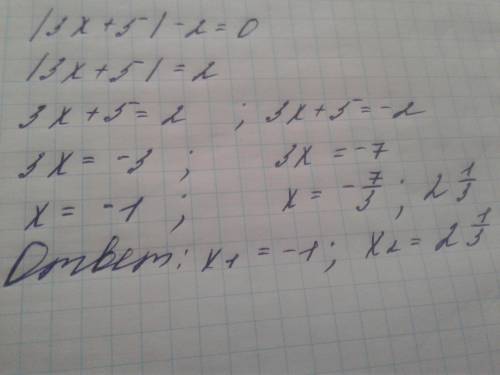 |3x+5|-2=0
|3x+5|=2
3x+5=2 ; 3x+5=-2
3x=-3 ; 3x=-7
x=-1 ; x=-7/3 ; 2 1/3
Ответ: x₁=-1; x₂=2 1/3